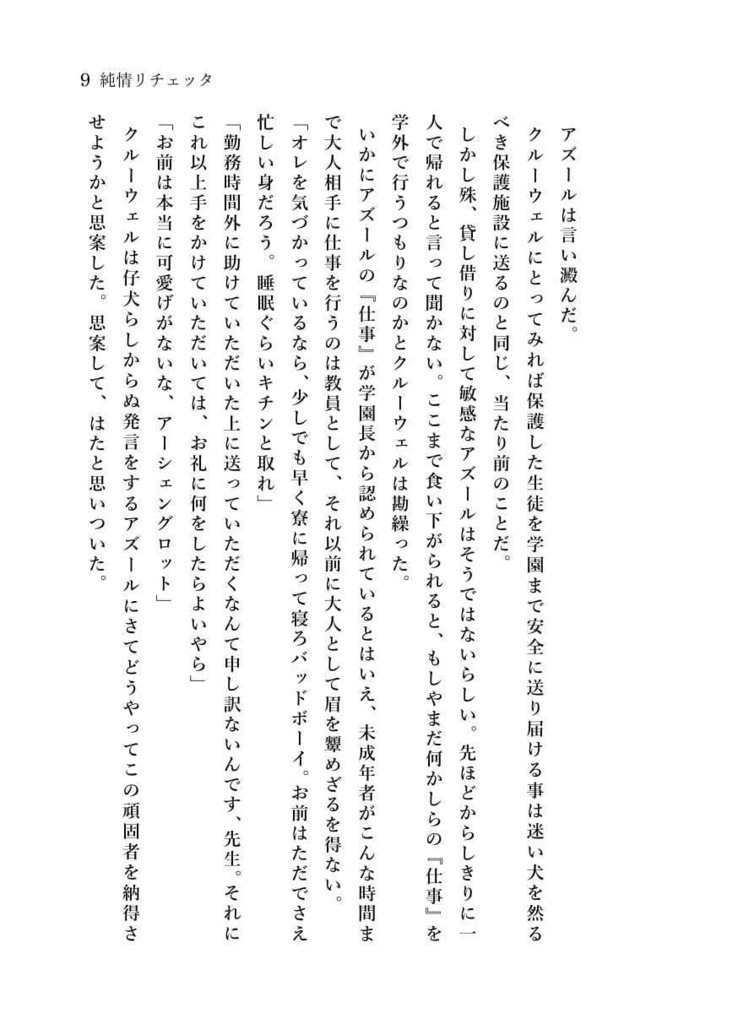 9 純情リチェッタ
アズールは言い澱んだ。
クルーウェルにとってみれば保護した生徒を学園まで安全に送り届ける事は迷い犬を然る
べき保護施設に送るのと同じ、当たり前のことだ。
しかし殊、貸し借りに対して敏感なアズールはそうではないらしい。先ほどからしきりに一
人で帰れると言って聞かない。ここまで食い下がられると、もしやまだ何かしらの『仕事』を
学外で行うつもりなのかとクルーウェルは勘繰った。
いかにアズールの『仕事』が学園長から認められているとはいえ、未成年者がこんな時間ま
で大人相手に仕事を行うのは教員として、それ以前に大人として眉を顰めざるを得ない。
「オレを気づかっているなら、少しでも早く寮に帰って寝ろバッドボーイ。お前はただでさえ
忙しい身だろう。睡眠ぐらいキチンと取れ」
「勤務時間外に助けていただいた上に送っていただくなんて申し訳ないんです、先生。それに
これ以上手をかけていただいては、お礼に何をしたらよいやら」
「お前は本当に可愛げがないな、アーシェングロット」
クルーウェルは仔犬らしからぬ発言をするアズールにさてどうやってこの頑固者を納得さ
せようかと思案した。思案して、はたと思いついた。